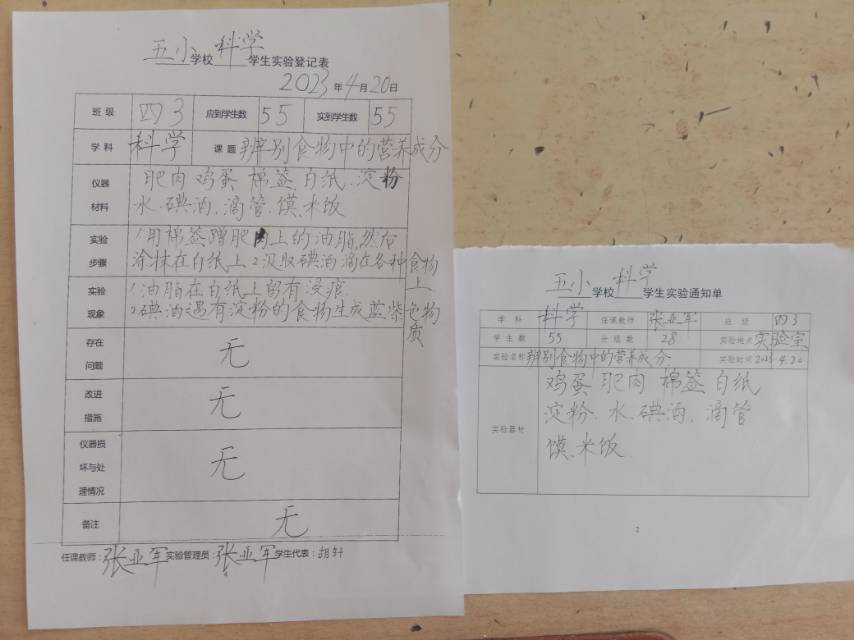 五小学校科学学生实验登记表
2023年4月20日
班级 四3 应到学生数 55 实到学生数 55
学科 科学 课题 辨别食物中的营养成分
仪器材料 肥肉 鸡蛋 棉签 白纸、淀粉
水、碘酒、滴管、馍、米饭
实验步骤 1用棉签蹭肥肉上的油脂,然后
涂抹在白纸上2汲取碘酒滴在各种食物上
实验现象 1油脂在白纸上留有浸痕
2碘酒遇有淀粉的食物生成蓝紫色物质
存在问题 无
改进措施 无
仪器损坏与处理情况 无
备注 无
任课教师:张亚军 实验管理员:张亚军 学生代表:
五小学校科学学生实验通知单
学科 科学 任课教师 张亚军 班级 四3
学生数 55 分组数 28 实验地点 实验室
实验名称 辨别食物中的营养成分 实验时间 2023 4.20
实验器材 鸡蛋 肥肉 棉签 白纸
淀粉、水、碘酒、滴管
馍、米饭
2